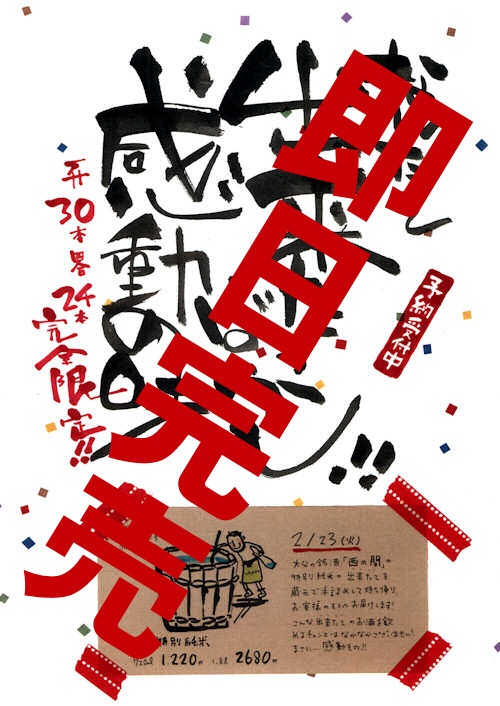 即日完売
感動の
予約受付中
30本
24本
完全限定!!
2/23(火)
大分の銘酒「西の関」の
特別純米の出来たてを
蔵元で手詰めして持ち帰り
お客様のもとへお届けします!
こんな出来たてのお酒を飲
めるチャンスはなかなかございません!
まさに…感動もの!!
特別純米
720ml 1.220円 1.8L 2680円